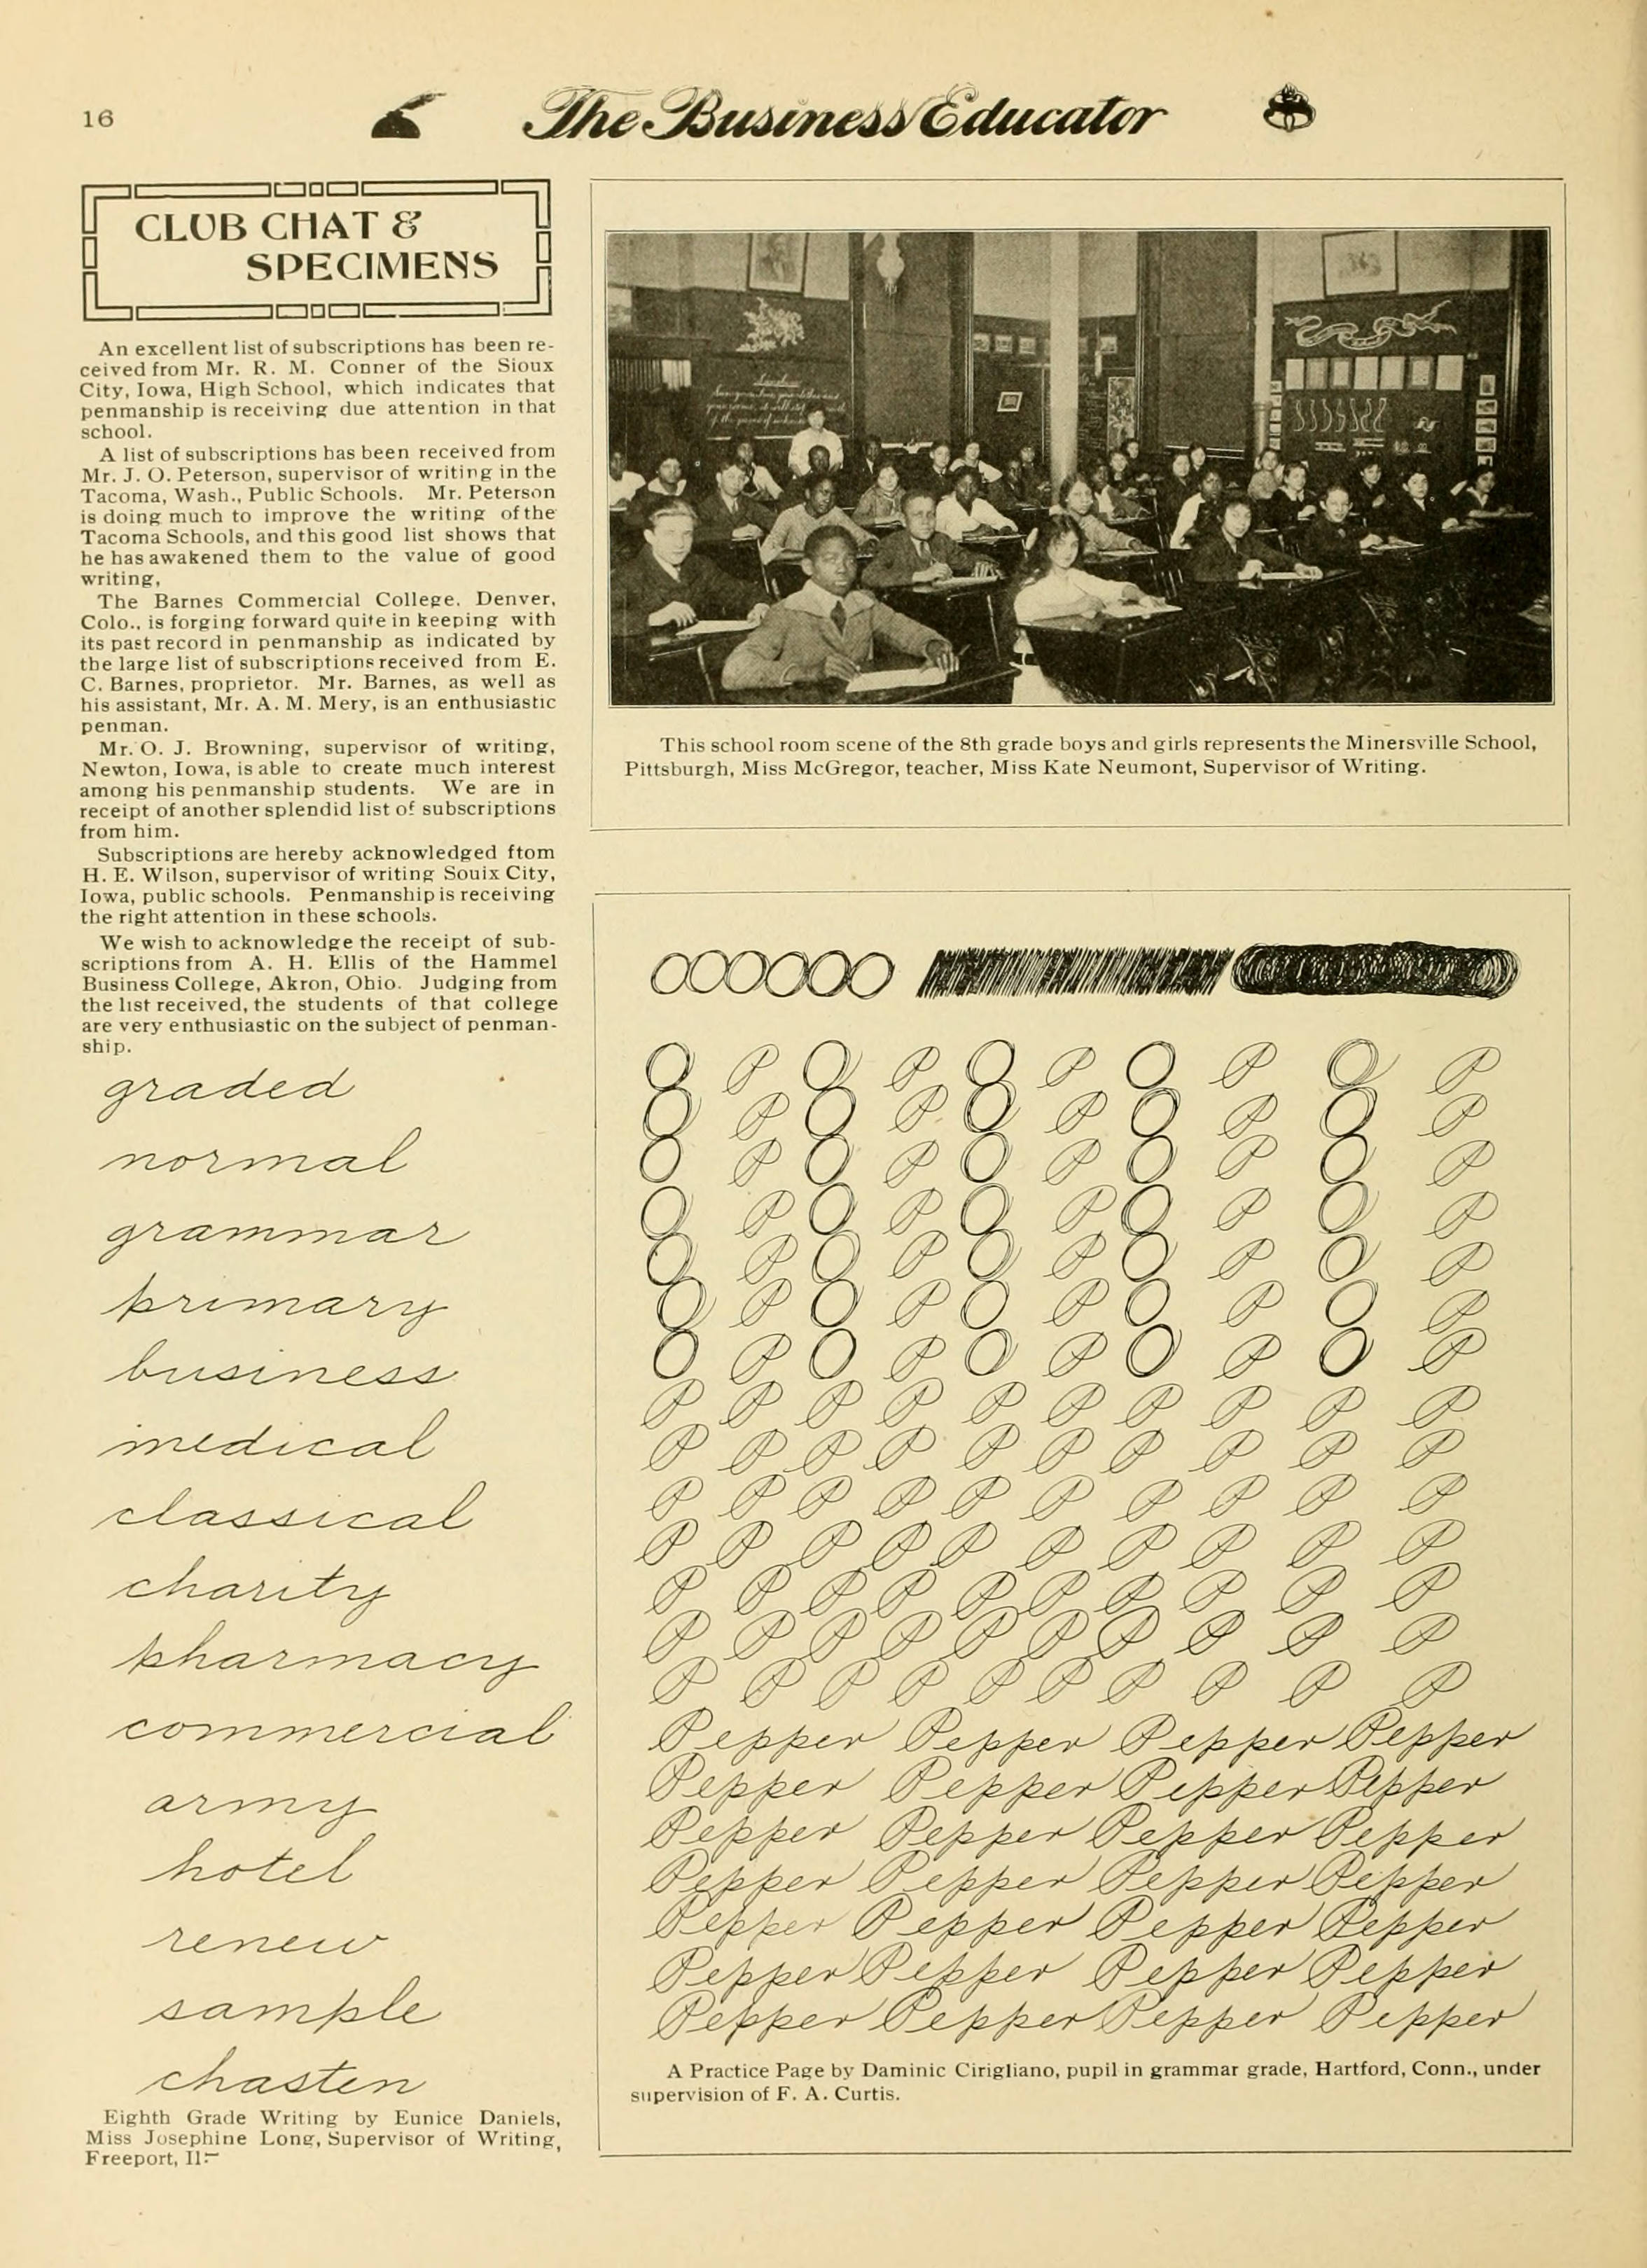 16
The Business Educator
CLUB CHAT &
SPECIMENS
An excellent list of subscriptions has been re-
ceived from Mr. R. M. Conner of the Sioux
City, Iowa, High School, which indicates that
penmanship is receiving due attention in that
school.
A list of subscriptions has been received from
Mr. J. O. Peterson, supervisor of writing in the
Tacoma, Wash., Public Schools. Mr. Peterson
is doing much to improve the writing of the
Tacoma Schools, and this good list shows that
he has awakened them to the value of good
writing,
The Barnes Commercial College. Denver,
Colo., is forging forward quite in keeping with
its past record in penmanship as indicated by
the large list of subscriptions received from E.
C. Barnes, proprietor. Mr. Barnes, as well as
his assistant, Mr. A. M. Mery, is an enthusiastic
penman.
Mr. O. J. Browning, supervisor of writing,
Newton, Iowa, is able to create much interest
among his penmanship students. We are in
receipt of another splendid list of subscriptions
from him.
Subscriptions are hereby acknowledged ftom
H. E. Wilson, supervisor of writing Souix City,
Iowa, public schools. Penmanship is receiving
the right attention in these schools.
We wish to acknowledge the receipt of sub-
scriptions from A. H. Ellis of the Hammel
Business College, Akron, Ohio. Judging from
the list received, the students of that college
are very enthusiastic on the subject of penman-
ship.
graded
normal
grammar
primary
business
medical
classical
charity
pharmacy
commercial
army
hotel
renew
sample
chasten
Eighth Grade Writing by Eunice Daniels,
Miss Josephine Long, Supervisor of Writing,
Freeport, Il
This school room scene of the 8th grade boys and girls represents the Minersville School,
Pittsburgh, Miss McGregor, teacher, Miss Kate Neumont, Supervisor of Writing.
O O O O O O
O P O P O P O P O P
O P O P O P O P O P
O P O P O P O P O P
O P O P O P O P O P
O P O P O P O P O P
O P O P O P O P O P
O P O P O P O P O P
P P P P P P P P P P
P P P P P P P P P P
P P P P P P P P P P
P P P P P P P P P P
P P P P P P P P P P
P P P P P P P P P P
P P P P P P P P P P
Pepper Pepper Pepper Pepper
Pepper Pepper Pepper Pepper
Pepper Pepper Pepper Pepper
Pepper Pepper Pepper Pepper
Pepper Pepper Pepper Pepper
Pepper Pepper Pepper Pepper
Pepper Pepper Pepper Pepper
A Practice Page by Daminic Cirigliano, pupil in grammar grade, Hartford, Conn., under
supervision of F. A. Curtis.